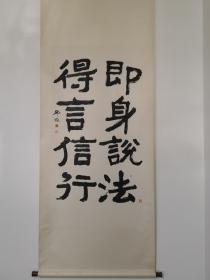 即身說法
得言信行